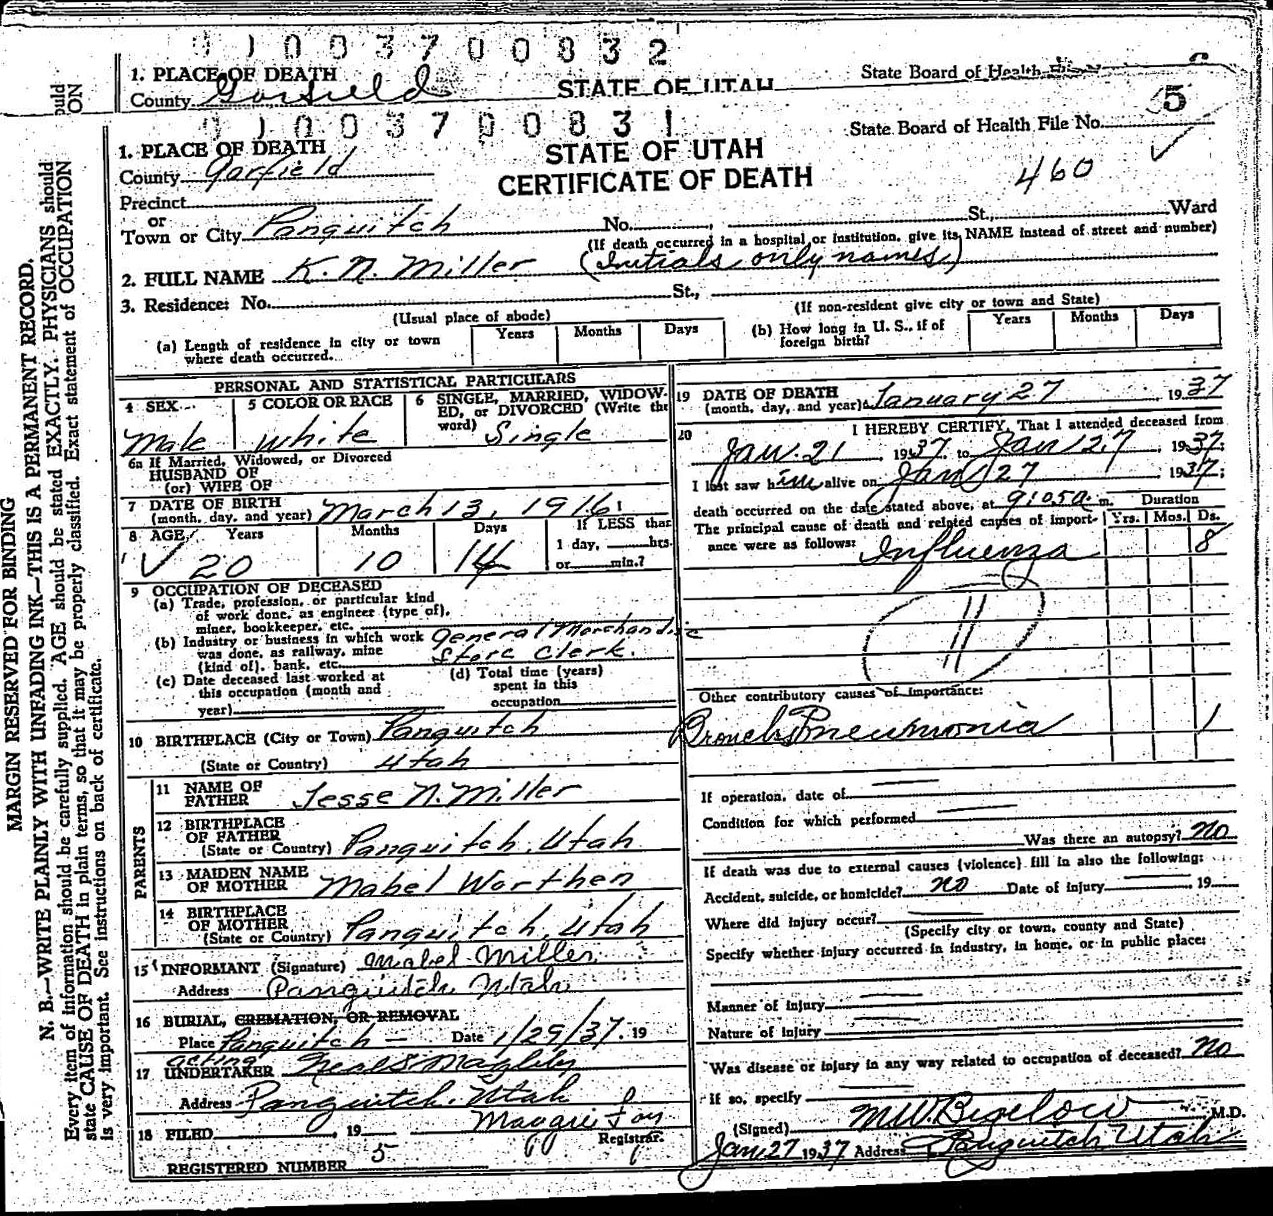 0100370 0832
1. PLACE OF DEATH
County Garfield
STATE OF UTAH
State Board of Health
010037 00831
1. PLACE OF DEATH
County Garfield
Precinct
or
Town or City Panguitch
STATE OF UTAH
CERTIFICATE OF DEATH
State Board of Health File No. 5
460
No. St., Ward
(If death occurred in a hospital or institution, give its NAME instead of street and number)
2. FULL NAME K. N. Miller (Initials only names)
3. Residence: No. St.,
(Usual place of abode)
(If non-resident give city or town and State)
(a) Length of residence in city or town where death occurred.
Years Months Days
(b) How long in U. S., if of foreign birth?
Years Months Days
PERSONAL AND STATISTICAL PARTICULARS
4 SEX
Male
5 COLOR OR RACE
White
6 SINGLE, MARRIED, WIDOWED, or DIVORCED (Write the word)
Single
6a If Married, Widowed, or Divorced
HUSBAND OF
(or) WIFE OF
7 DATE OF BIRTH
(month, day, and year) March 13, 1916
8 AGE Years Months Days
20 10 14
If LESS than
1 day, hrs.
or min.?
9 OCCUPATION OF DECEASED
(a) Trade, profession, or particular kind
of work done, as engineer (type of),
miner, bookkeeper, etc.
(b) Industry or business in which work
was done, as railway, mine
(kind of), bank, etc.
General Merchandise
Store Clerk.
(c) Date deceased last worked at
this occupation (month and
year)
(d) Total time (years)
spent in this
occupation
10 BIRTHPLACE (City or Town) Panguitch
(State or Country) Utah
PARENTS
11 NAME OF
FATHER Jesse N. Miller
12 BIRTHPLACE
OF FATHER
(State or Country) Panguitch, Utah
13 MAIDEN NAME
OF MOTHER Mabel Worthen
14 BIRTHPLACE
OF MOTHER
(State or Country) Panguitch, Utah
15 INFORMANT (Signature) Mabel Miller
Address Panguitch Utah
16 BURIAL, CREMATION, OR REMOVAL
Place Panguitch — Date 1/29/37. 19
acting
17 UNDERTAKER Neal S Magleby
Address Panguitch. Utah
18 FILED , 19 Maggie Foy
Registrar.
REGISTERED NUMBER 5
19 DATE OF DEATH
(month, day, and year) January 27 1937
20 I HEREBY CERTIFY, That I attended deceased from
Jan. 21, 1937, to Jan 27, 1937;
I last saw him alive on Jan 27 1937;
death occurred on the date stated above, at 9:05 a m.
Duration
The principal cause of death and related causes of importance were as follows:
Yrs. Mos. Ds.
Influenza 8
11
Other contributory causes of importance:
Broncho Pneumonia 1
If operation, date of
Condition for which performed
Was there an autopsy? No
If death was due to external causes (violence) fill in also the following:
Accident, suicide, or homicide? No Date of injury , 19
Where did injury occur?
(Specify city or town, county and State)
Specify whether injury occurred in industry, in home, or in public place:
Manner of injury
Nature of Injury
Was disease or injury in any way related to occupation of deceased? No
If so, specify
(Signed) M.W. Bigelow M.D.
Jan 27 1937 Address Panguitch Utah
MARGIN RESERVED FOR BINDING
N. B.—WRITE PLAINLY WITH UNFADING INK—THIS IS A PERMANENT RECORD.
Every item of information should be carefully supplied. AGE should be stated EXACTLY. PHYSICIANS should
state CAUSE OF DEATH in plain terms, so that it may be properly classified. Exact statement of OCCUPATION
is very important. See instructions on back of certificate.